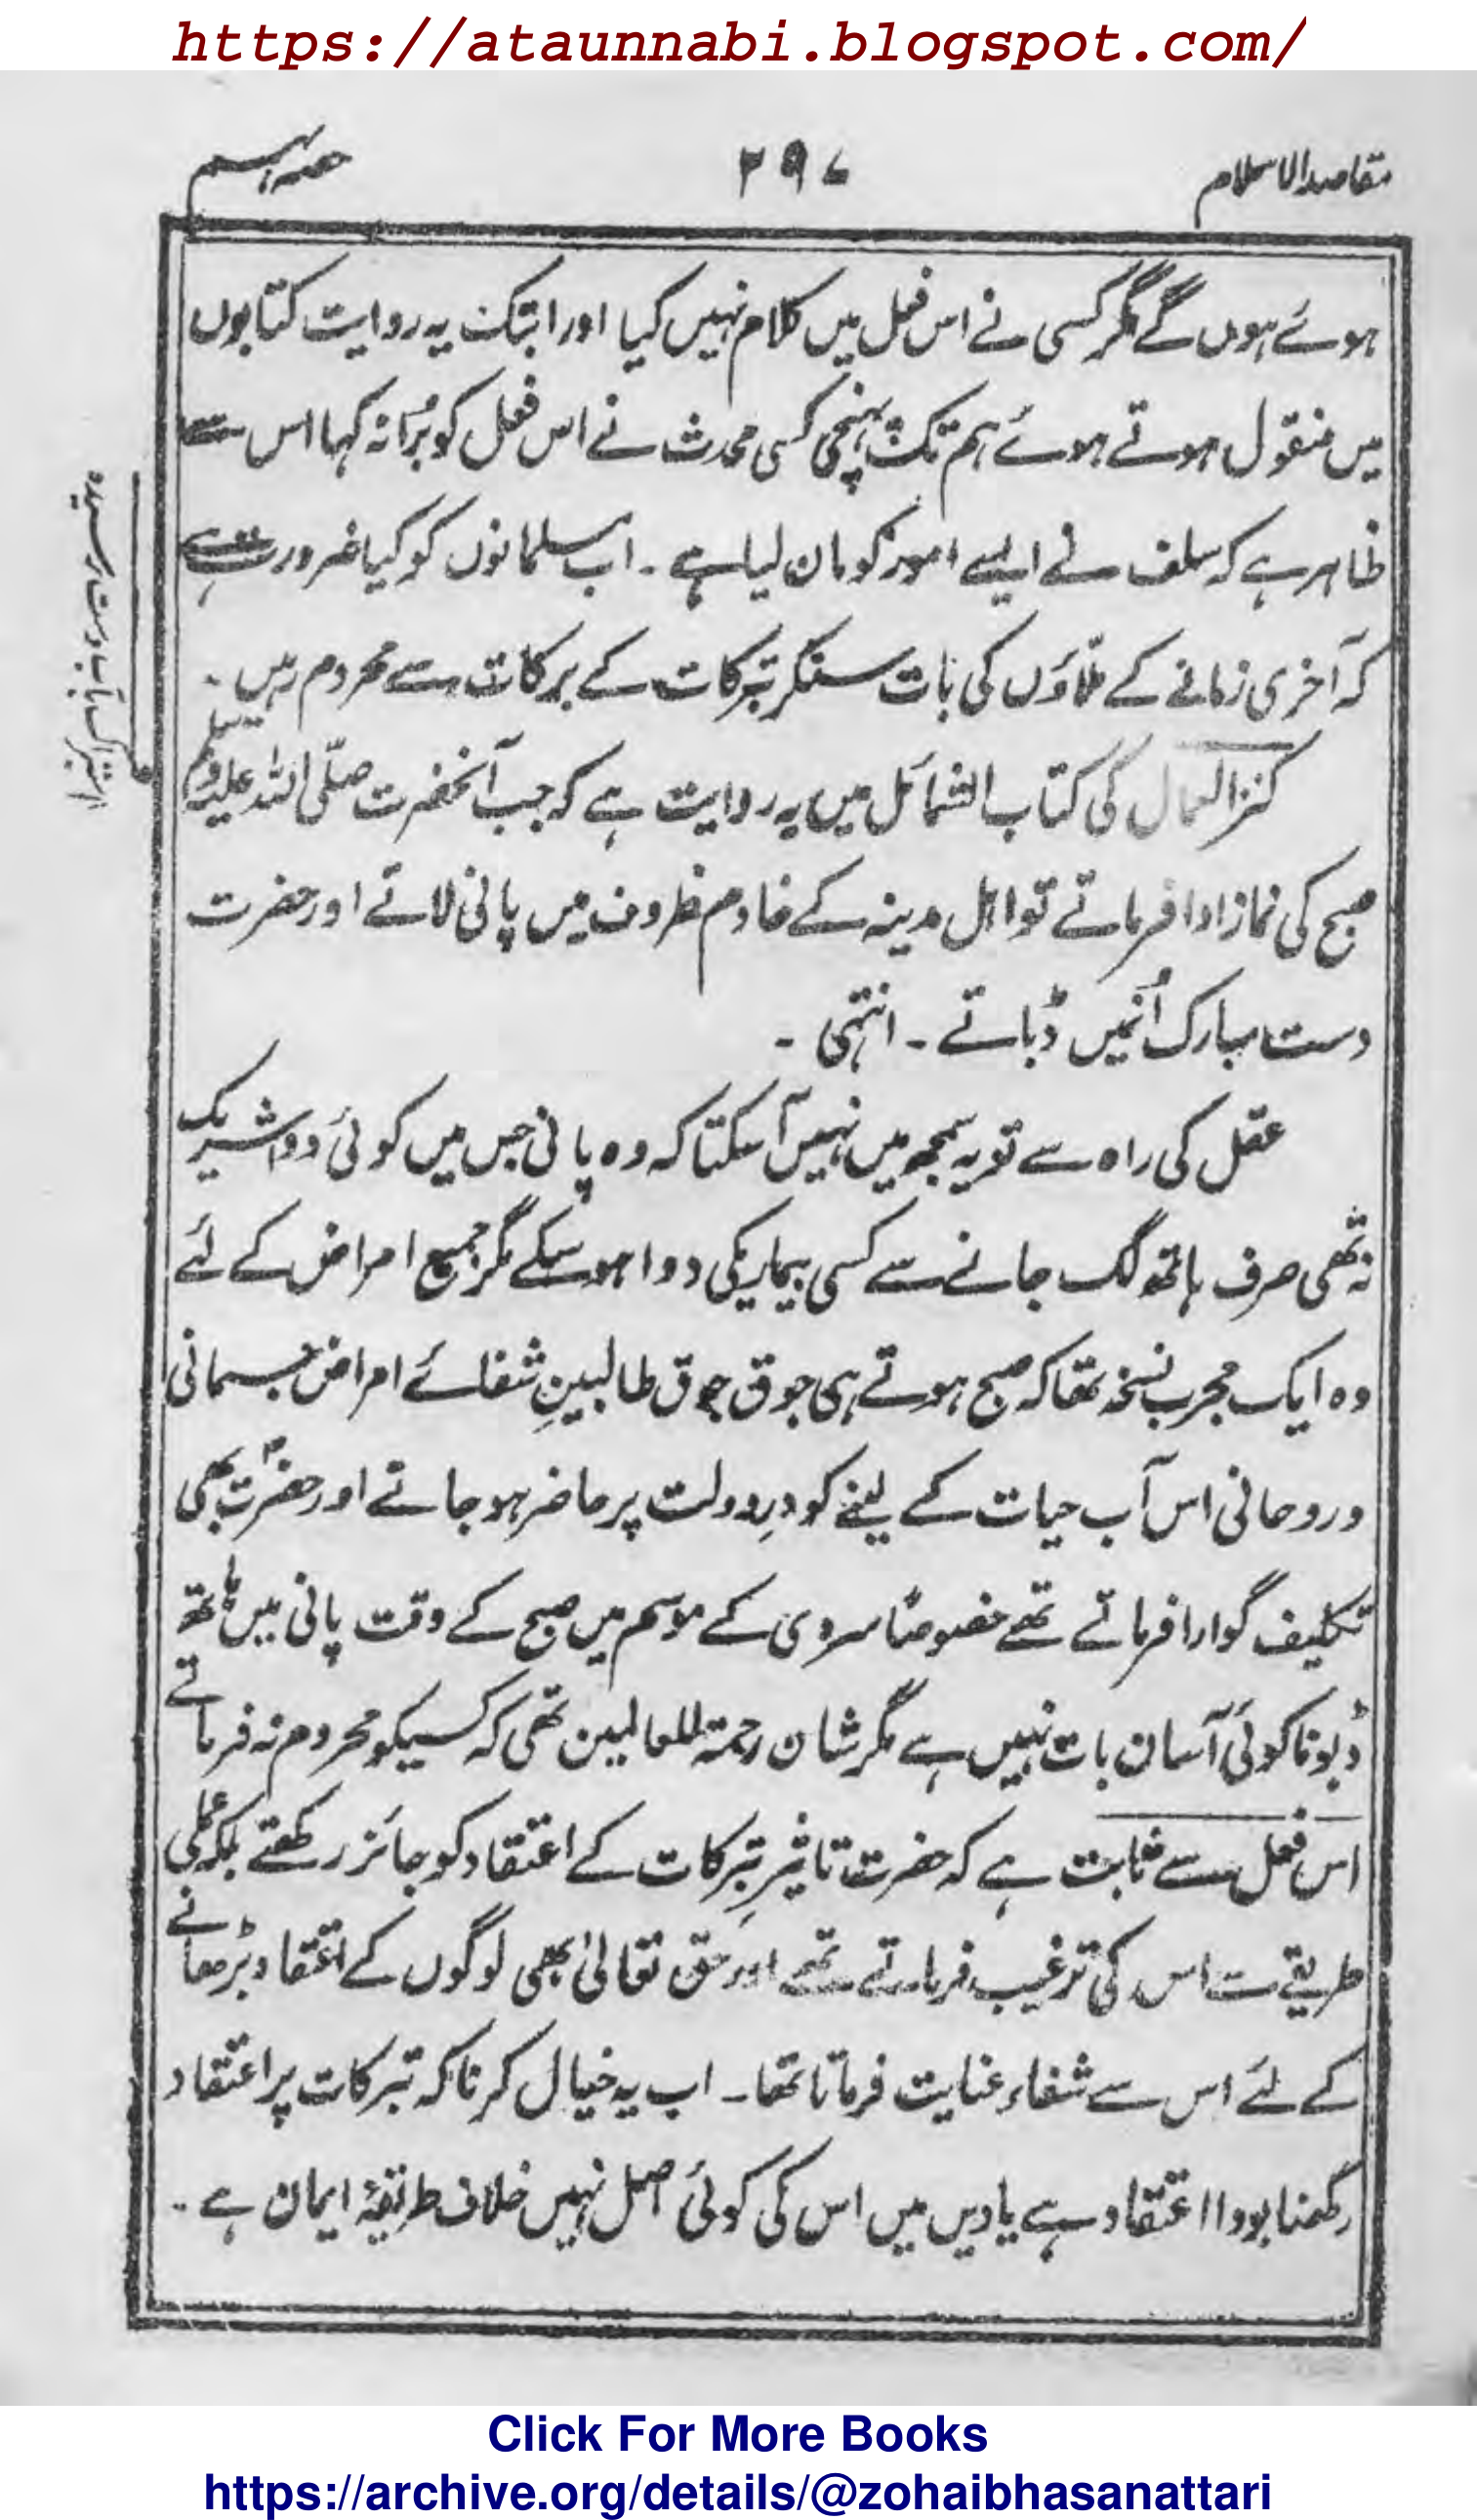 https://ataunnabi.blogspot.com/
مقاصد الاسلام
۲۹۷
حصہ نہم
ہوئے ہوں گے مگر کسی نے اس فعل میں کلام نہیں کیا اور ابتک یہ روایت کتابوں
میں منقول ہوتے ہوئے ہم تک پہنچی کسی محدث نے اس فعل کو بُرا نہ کہا اس سے
ظاہر ہے کہ سلف نے ایسے امور کو مان لیا ہے ۔ اب مسلمانوں کو کیا ضرورت ہے
کہ آخری زمانے کے ملاؤں کی بات سنکر تبرکات کے برکات سے محروم رہیں ۔
کنز العمال کی کتاب الشمائل میں یہ روایت ہے کہ جب آنحضرت صلّی اللہ علیہ وسلم
صبح کی نماز ادا فرماتے تو اہل مدینہ کے خادم ظروف میں پانی لاتے اور حضرت
دست مبارک اُنمیں ڈباتے ۔ انتہی ۔
عقل کی راہ سے تو یہ سمجھ میں نہیں آسکتا کہ وہ پانی جس میں کوئی دوا شریک
نہ تھی صرف ہاتھ لگ جانے سے کسی بیماریکی دوا ہوسکے مگر جمیع امراض کے لئے
وہ ایک مجرب نسخہ تھا کہ صبح ہوتے ہی جوق جوق طالبینِ شفائے امراض جسمانی
و روحانی اس آب حیات کے لینے کو درِ دولت پر حاضر ہو جاتے اور حضرتؐ بھی
تکلیف گوارا فرماتے تھے خصوصًا سردی کے موسم میں صبح کے وقت پانی میں ہاتھ
ڈبونا کوئی آسان بات نہیں ہے مگر شان رحمۃ للعالمین تھی کہ کسیکو محروم نہ فرماتے
اس فعل سے ثابت ہے کہ حضرت تاثیرِ تبرکات کے اعتقاد کو جائز رکھتے بلکہ عملی
طریقے سے اس کی ترغیب فرماتے تھے اور حق تعالیٰ بھی لوگوں کے اعتقاد بڑھانے
کے لئے اس سے شفاء عنایت فرماتا تھا ۔ اب یہ خیال کرنا کہ تبرکات پر اعتقاد
رکھنا بودا اعتقاد ہے یا دیں میں اس کی کوئی اصل نہیں خلاف طریقۂ ایمان ہے ۔
Click For More Books
https://archive.org/details/@zohaibhasanattari